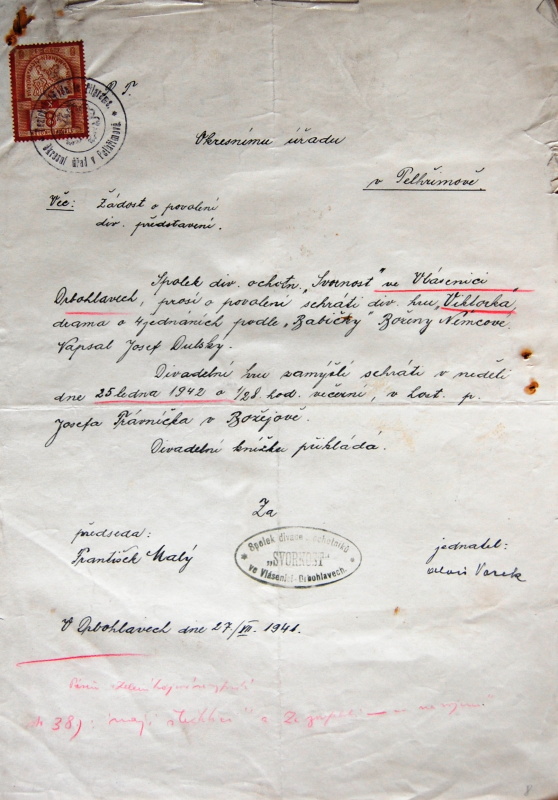 P. T.
Okresnímu úřadu
v Pelhřimově.
Věc: Žádost o povolení
div. představení.
Spolek div. ochotn. „Svornost" ve Vlásenici
Drbohlavech, prosí o povolení sehráti div. hru „Viktorka,
drama o 4 jednáních podle „Babičky" Boženy Němcové.
Napsal Josef Dulský.
Divadelní hru zamýšlí sehráti v neděli
dne 25 ledna 1942 o 1/28 hod. večerní, v host. p.
Josefa Trávníčka v Božejově.
Divadelní knížku přikládá.
Za
předseda:
František Malý
Spolek divadel. ochotníků
„SVORNOST"
ve Vlásenici-Drbohlavech.
jednatel:
Alois
V Drbohlavech dne 27/XII. 1941.
Okresní úřad v Pelhřimově
8
38):
8